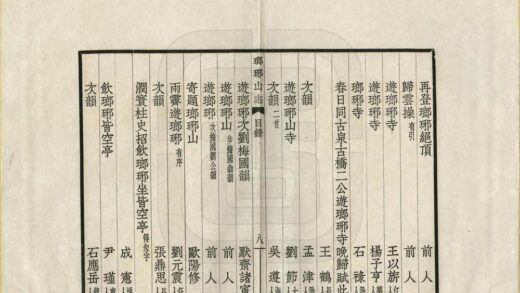 再登瑯琊絕頂 前人
歸雲操 有引 前人
遊瑯琊寺 王以旂
遊瑯琊寺 楊子亨
瑯琊寺 石祿
春日同古泉古橋二公遊瑯琊寺晚歸賦此
王鶴
次韻 孟津
遊瑯琊山寺 劉節
次韻 二首 吳遵
瑯琊山志 目錄 八
遊瑯琊次劉梅國韻 默齋諸
遊瑯琊山 步梅國翁韻 前人
遊瑯琊 次梅國劉公韻 前人
寄題瑯琊山 歐陽修
雨霽遊瑯琊 有序 劉元震
次韻 張鼎思
澗寰柱史招飲瑯琊坐皆空亭
成憲
飲瑯琊皆空亭 尹瑾
次韻 石應岳